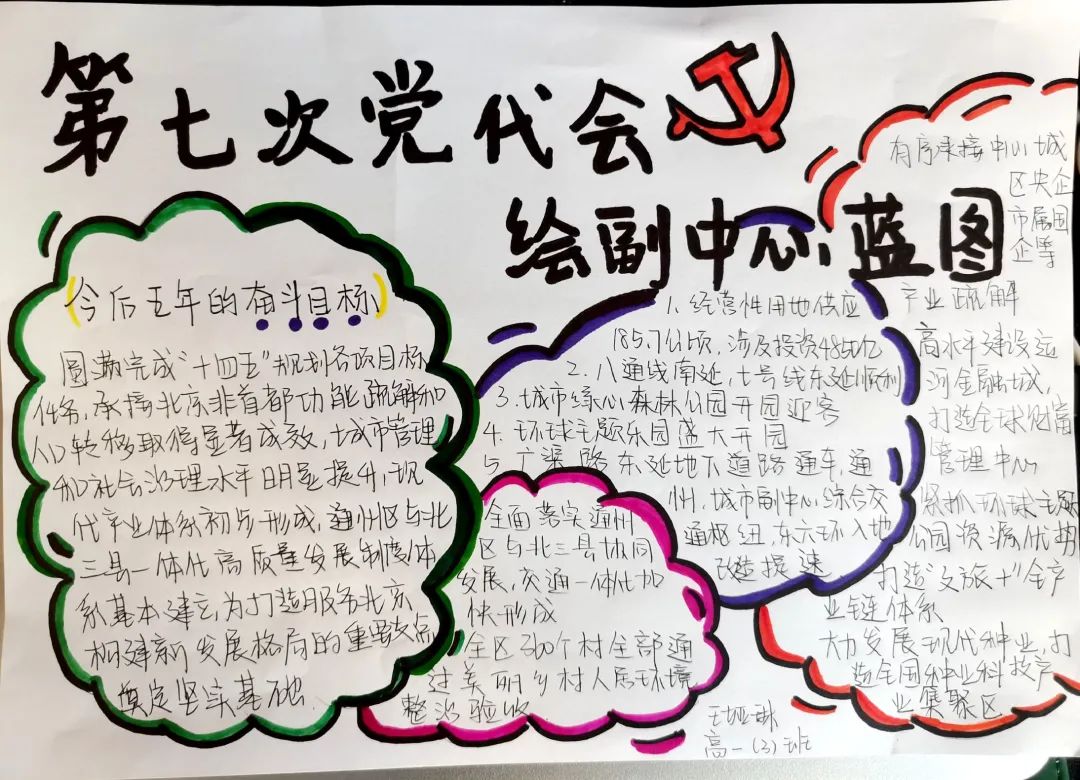 第七次党代会
绘副中心蓝图
(今后五年的奋斗目标)
圆满完成"十四五"规划各项目标
任务,承接北京非首都功能疏解和
人口转移取得显著成效,城市管理
和社会治理水平明显提升,现
代产业体系初步形成,通州区与北
三县一体化高质量发展制度体
系基本建立,为打造服务北京
构建新发展格局的重要支点
奠定坚实基础.
1.经营性用地供应
185.7公顷,涉及投资485亿
2.八通线南延,七号线东延顺利
3.城市绿心森林公园开园迎客
4.环球主题乐园盛大开园
5.广渠路东延地下道路通车,通
州,城市副中心综合交
通枢纽,东六环入地
改造提速
全面落实通州
区与北三县协同
发展,交通一体化加
快形成
全区360个村全部通
过美丽乡村人居环境
整治验收
有序承接中心城
区央企
市属国
企等
产业疏解
高水平建设运
河金融城,
打造全球财富
管理中心
紧抓环球主题
公园资源优势
打造"文旅+"全产
业链体系
大力发展现代种业,打
造全国种业科技产
业集聚区
高一(3)班